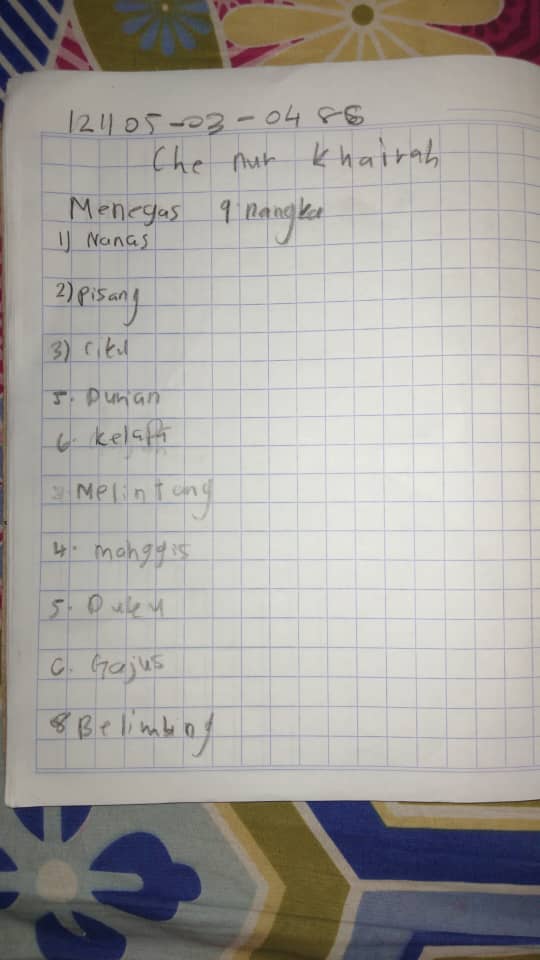 121105-03-0486
Che nur Khairah
Menegas 9. nangka
1) Nanas
2) Pisang
3) Ciku
5. Durian
6. Kelapa
Melintang
4. manggis
5. Duku
6. Gajus
8 Belimbing